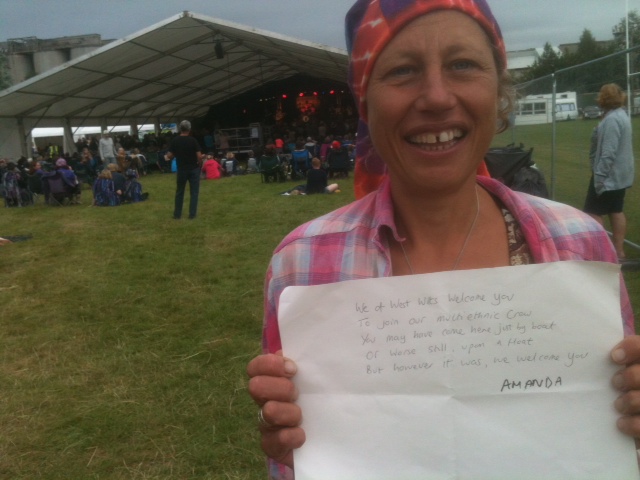 We of West Wilts Welcome you
To join our multi ethnic Crew
You may have come here just by boat
Or worse still, upon a float
But however it was, we welcome you
AMANDA